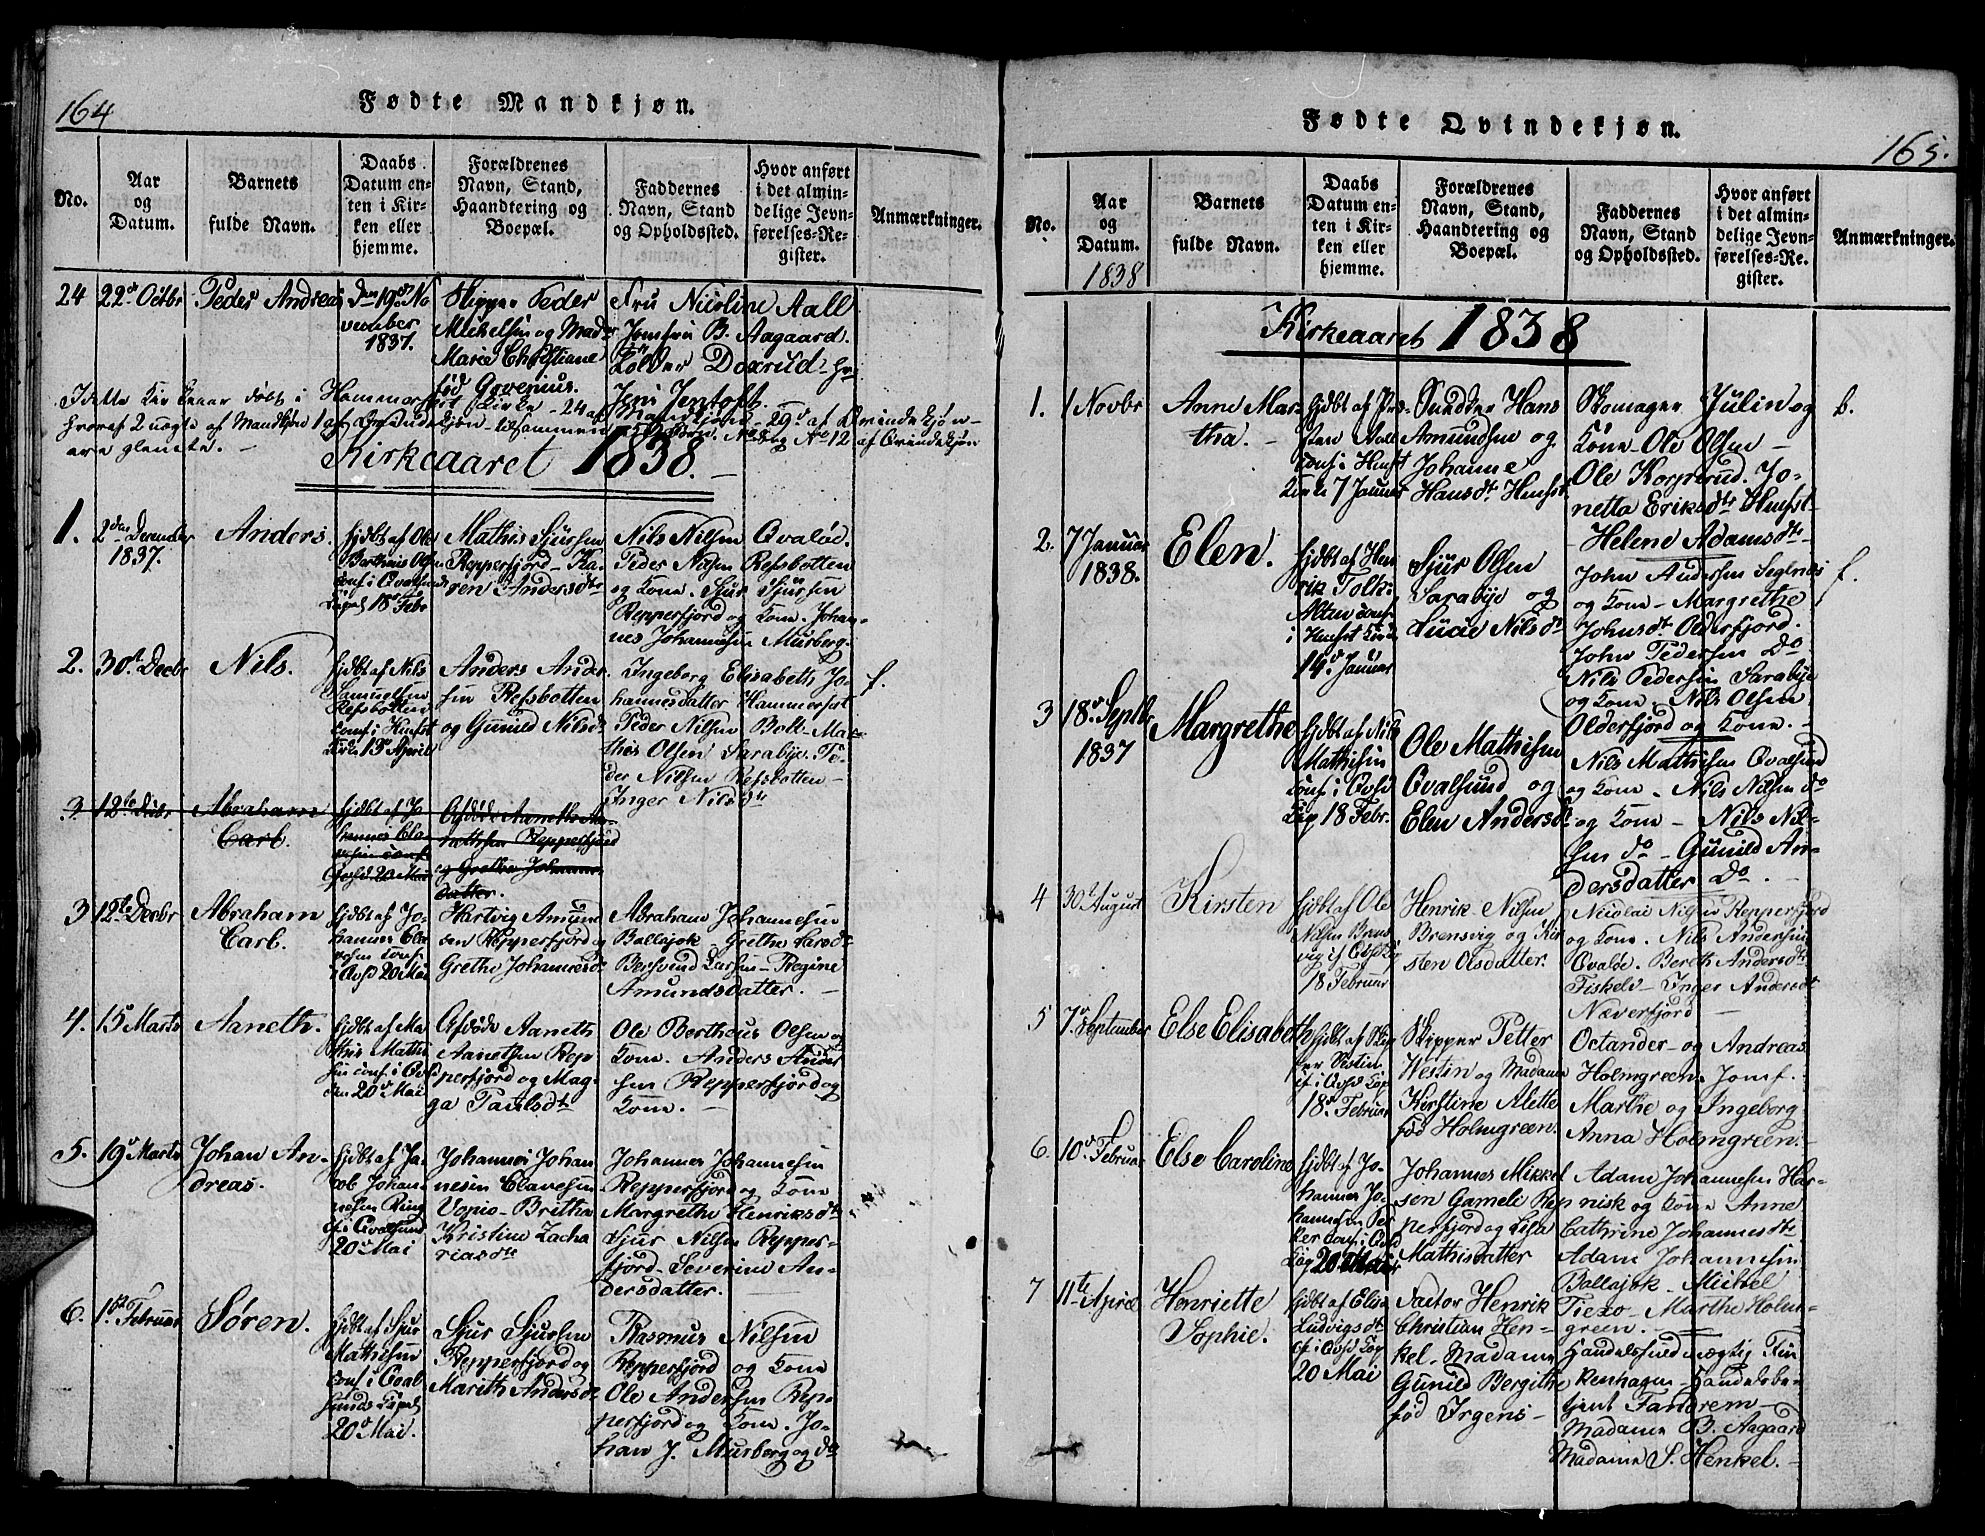 164
Fødte Mandkjøn.
No.
Aar
og
Datum.
Barnets
fulde Navn.
Daabs
Datum en-
ten i Kir-
ken eller
hjemme.
Forældrenes
Navn, Stand,
Haandtering og
Boepæl.
Faddernes
Navn, Stand
og Opholdssted.
Hvor anført
i det almin-
delige Jevn-
førelses-Re-
gister.
Anmærkninger.
24
22d Octbr
Peder Andreas
Den 19de No
vember
1837.
Skipper Peder
Michelsen og Madr
Marie Christiane
fød Grvenius.
Fru Nicoline Aall
Jomfru B. Aagaard.
Doxrud
Jens Jentoft.
Kirkeaaret 1838.
1.
2den December
1837.
Anders.
hjdbt af Ole
Bertheus Olsen
conf i Qvalsunds
Capel 18de Febr
Mathis Sjursen
Repperfjord - Ka-
ren Andersdtr
Nils Nilsen Qvaløe.
Peder Nilsen Refsbotten
og Kone. Sjur Sjursen
Repperfjord og Kone. Johan-
nes Johannesen Murberg.
2.
30te Decbr
Nils.
hjdbt af Nils
Samuelsen
Refsbotten
conf i Hmfst
Kirke 13de April
Anders Ander
sen Refsbotten
og Gunild Nilsd
Ingeborg Elisabeth Jo-
hannesdatter Hammerfest
Peder Nilsen Bott- Ma-
this Olsen Sarabye. Pe-
der Nilsen Refsbotten -
Inger Nilsdtr
f.
3.
12te Decbr
Abraham
Carl.
3
12te Decbr
Abraham
Carl.
hjdbt af Jo-
hannes Cla-
vesen conf
i Qvsd 20 Mai
Hartvig Amun
sen Repperfjord og
Grethe Johannesd
Abraham Johannesen
Ballajok - Grethe Larsdtr
Bersvend Larsen - Regine
Amundsdatter. -
4.
15d Marts
Aaneth.
hjdbt af Ma
this Mathi
sen conf. i Qvsd
den 20de Mai
Afdøde Aaneth
Aanetsen Rep
perfjord og Mag-
ga Paulsdtr
Ole Bertheus Olsen og
Kone. Anders Ander
sen Repperfjord og
Kone. -
5.
19d Marts
Johan An-
dreas.
hjdbt af Ja-
cob Johan-
nesen Ring
cf i Qvalsund
20de Mai
Johannes Johan
nesen Clavesen
Vopio - Brithe
Kristine Zacha
riasdtr
Johannes Johannesen
Repperfjord og Kone
Margrethe Henriksdtr
Sjur Nilsen Repper-
fjord - Severine An-
dersdatter.
6.
1ste Februar
Søren.
hjdbt af Sjur
Mathisen
conf i Qval-
sunds Capel
20de Mai.
Sjur Sjursen
Repperfjord og
Marith Andersdtr
Rasmus Nilsen
Repperfjord og Kone
Ole Andersen Rep-
perfjord og Kone. Jo-
han J. Murberg og do
Fødte Qvindekjøn.
165.
No.
Aar
og
Datum.
1838
Barnets
fulde Navn.
Daabs
Datum en-
ten i Kir-
ken eller
hjemme.
Forældrenes
Navn, Stand,
Haandtering og
Boepæl.
Faddernes
Navn, Stand
og Opholdssted.
Hvor anført
i det almin-
delige Jevn-
førelses-Re-
gister.
Anmærkninger.
Kirkeaaret 1838
1.
1 Novbr
Anne Mar-
tha. -
hjdbt af Præ-
sten Aall
conf i Hmfst
Kirke 7 Januar
Snedker Hans
Amundsen og
Johanne
Hansdtr Hmfst
Skomager Julin og
Kone - Ole Olsen -
Ole Korperud. Jo-
netta Eriksdtr Hmfst -
Helene Adamsdtr
b.
2.
7 Januar
1838.
Elen.
hjdbt af Hen
rik Tolk
Alten conf
i Hmfst Kirke
14d Januar
Sjur Olsen
Sarabye og
Lucie Nilsdr
John Andersen Seglnæs
og Kone - Margrethe
Johnsdtr Olderfjord.
John Pedersen Do
Nils Pedersen Sarabye
og Kone. Nils Olsen
Olderfjord og Kone. -
f.
3
18d Septbr
1837
Margrethe
hjdbt af Nils
Mathisen
conf i Qvsd
Cap 18 Febr.
Ole Mathisen
Qvalsund og
Elen Andersdtr
Nils Mathisen Qvalsund
og Kone. Nils Nilsen do
og Kone - Nils Nil-
sen do - Gunild An-
dersdatter Do. -
4
30te August
Kirsten
hjdbt af Ole
Nilsen Brens
vig cf Qvsd Cap
18 Februar
Henrik Nilsen
Brensvig og Kir
sten Olsdatter.
Nicolai Nilsen Repperfjord
og Kone. Nils Andersen
Qvaløe. Bereth Andersdtr
Fiskelv - Inger Andersdtr
Næverfjord -
5
7de September
Else Elisabeth
hjdbt af Skip
per Westin
cf i Qvsd Cap
18de Februar
Skipper Petter
Westin og Madame
Kirstine Alette
fød Holmgreen.
Octander - og Andreas
Holmgreen. Jomf.
Marthe og Ingeborg
Anna Holmgreen. -
6.
10de Februar
Else Caroline
hjdbt af Jo-
hannes Jo-
hannesen Per
ker conf. i Qvsd
Cap 20 Mai
Johannes Mikkel
sen Gameli Rep
perfjord og Lisa
Mathisdatter
Adam Johannesen Har-
nisk og Kone Anne
Cathrine Johannesdtr
Adam Johannesen
Ballajok - Mickel
Tiexo - Marthe Holm-
green. -
7
11te April
Henriette
Sophie.
hjdbt af Elisa
Ludvigsdtr
cf i Qvsd Cap
20 Mai
Factor Henrik
Christian Hen-
kel. Madame
Gunild Bergithe
fød Irgens -
Handelsfuldmægtig Fin
kenhagen - Handelsbe-
tjent Fandrem -
Madame B. Aagaard
Madame S. Henkel. -